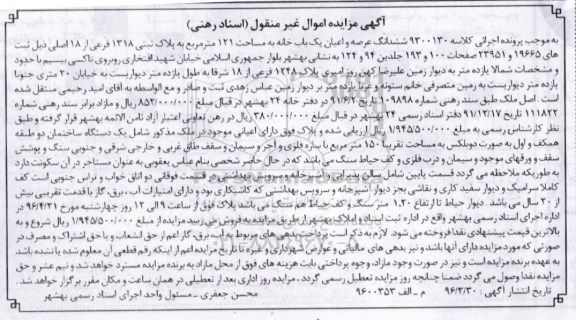 آگهی مزایده اموال غیر منقول (اسناد رهنی)
به موجب پرونده اجرائی کلاسه ۹۲۰۰۱۳۰ ششدانگ عرصه و اعیان یک باب خانه به مساحت ۱۲۱ مترمربع به پلاک ثبتی ۱۳۱۸ فرعی از ۱۸ اصلی ذیل ثبت
های ۱۹۶۶۵ و ۲۳۹۵۱ صفحات ۱۰۰ و ۱۹۳ جلدین ۹۴ و ۱۲۴ به نشانی بهشهر بلوار جمهوری اسلامی خیابان شهید افتخاری روبروی تاکسی بیسیم با حدود
و مشخصات شمالا یازده متر به دیوار زمین علیرضا کهن روز امیری پلاک ۱۲۴۸ فرعی از ۱۸ شرقا به طول یازده متر دیواریست به خیابان ۲۰ متری جنوبا
ده متر دیواریست به زمین متصرفی خانم ستونه و غربا یازده متر بر دیوار زمین عباس زهدی ثبت و صادر و مع الواسطه به آقای امید رحیمی منتقل شده
است. اصل ملک طبق سند رهنی شماره ۱۰۹۸۹۸ تاریخ ۹۱/۶/۲ در دفتر خانه ۲۴ بهشهر در قبال مبلغ ۸۵۲/۰۰۰/۰۰۰ ریال و مازاد برابر سند رهنی شماره
۱۱۱۸۲۲ تاریخ ۹۱/۱۲/۱۷ دفتر اسناد رسمی ۲۴ بهشهر در قبال مبلغ ۳۸۰/۰۰۰/۰۰۰ ریال در رهن تعاونی اعتبار آزاد ثامن الائمه بهشهر قرار گرفته و طبق
نظر کارشناس رسمی به مبلغ ۱/۹۴۵/۵۰۰/۰۰۰ ریال ارزیابی شده و پلاک فوق دارای اعیانی موجود در ملک مذکور شامل یک دستگاه ساختمان دو طبقه
همکف و اول به صورت دوبلکس به مساحت تقریبا ۱۵۰ متر مربع با سازه فلزی و آجر و سیمان و سقف طاق غربی و خارجی شرقی و جنوبی سنگ و پوشش
سقف و ورقهای موجود و سیمان و درب فلزی و کف حیاط سنگ می باشد که در حال حاضر شخصی بنام عباس یعقوبی به عنوان مستاجر در آن سکونت دارد
به طوریکه ملاحظه می گردد قسمت پایین شامل سالن پذیرایی آشپزخانه و سرویس بهداشتی در قسمت فوقانی دو اتاق خواب و تراس جنوبی است کف
کاملا سرامیک و دیوار سفید کاری و نقاشی بجز دیوار آشپزخانه و سرویس بهداشتی که کاشیکاری بود و دارای امتیازات آب، برق، گاز با قدمت تقریبی بیش
از ۲۰ سال می باشد. دیوار حیاط تا ارتفاع ۱.۲۰ متر سنگ و کف حیاط هم سنگ می باشد پلاک فوق از ساعت ۹ الی ۱۲ روز چهارشنبه مورخ ۹۶/۴/۲۱ در
اداره اجرای اسناد رسمی بهشهر واقع در اداره ثبت اسناد و املاک بهشهر از طریق مزایده به فروش می رسد مزایده از مبلغ ۱/۹۴۵/۵۰۰/۰۰۰ ریال شروع و به
بالاترین قیمت پیشنهادی نقدا فروخته می شود. لازم به ذکر است پرداخت بدهی های مربوط به آب، برق، گاز اعم از حق انشعاب و یا حق اشتراک و مصرف در
صورتی که مورد مزایده دارای آنها باشد و نیز بدهی های مالیاتی و عوارض شهرداری و غیره تا تاریخ مزایده اعم از اینکه رقم قطعی آن معلوم شده یا نشده باشد
به عهده برنده مزایده است و نیز در صورت وجود مازاد، وجوه پرداختی بابت هزینه های فوق از محل مازاد به برنده مزایده مسترد خواهد شد و نیم عشر و حق
مزایده نقدا وصول می گردد ضمنا چنانچه روز مزایده تعطیل رسمی گردد، مزایده روز اداری بعد از تعطیلی در همان ساعت و مکان مقرر برگزار خواهد شد.
تاریخ انتشار آگهی: ۹۶/۳/۳۰ م - الف ۹۶۰۰۳۵۲ محسن جعفری - مسئول واحد اجرای اسناد رسمی بهشهر